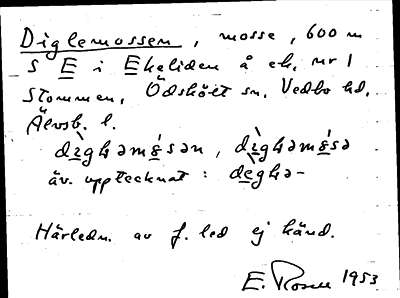 Diglemossen, mosse, 600 m
S E i Ekeliden å ek. nr 1
Stommen, Ödskölt sn, Vedbo hd,
Älvsb. l.
äv. upptecknat:
Härledn. av f. led ej känd.
E. Rosell 1953